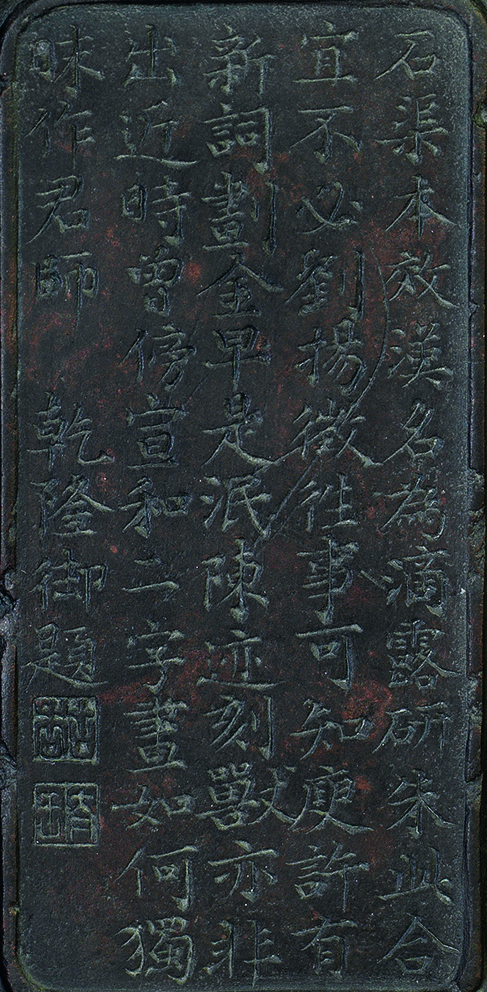 石渠本效漢名為滴露研朱此合
宜不必劉揚徵往事可知庾許有
新詞劃金早是泯陳迹刻獸亦非
出近時曾傍宣和二字畫如何獨
昧作君師 乾隆御題